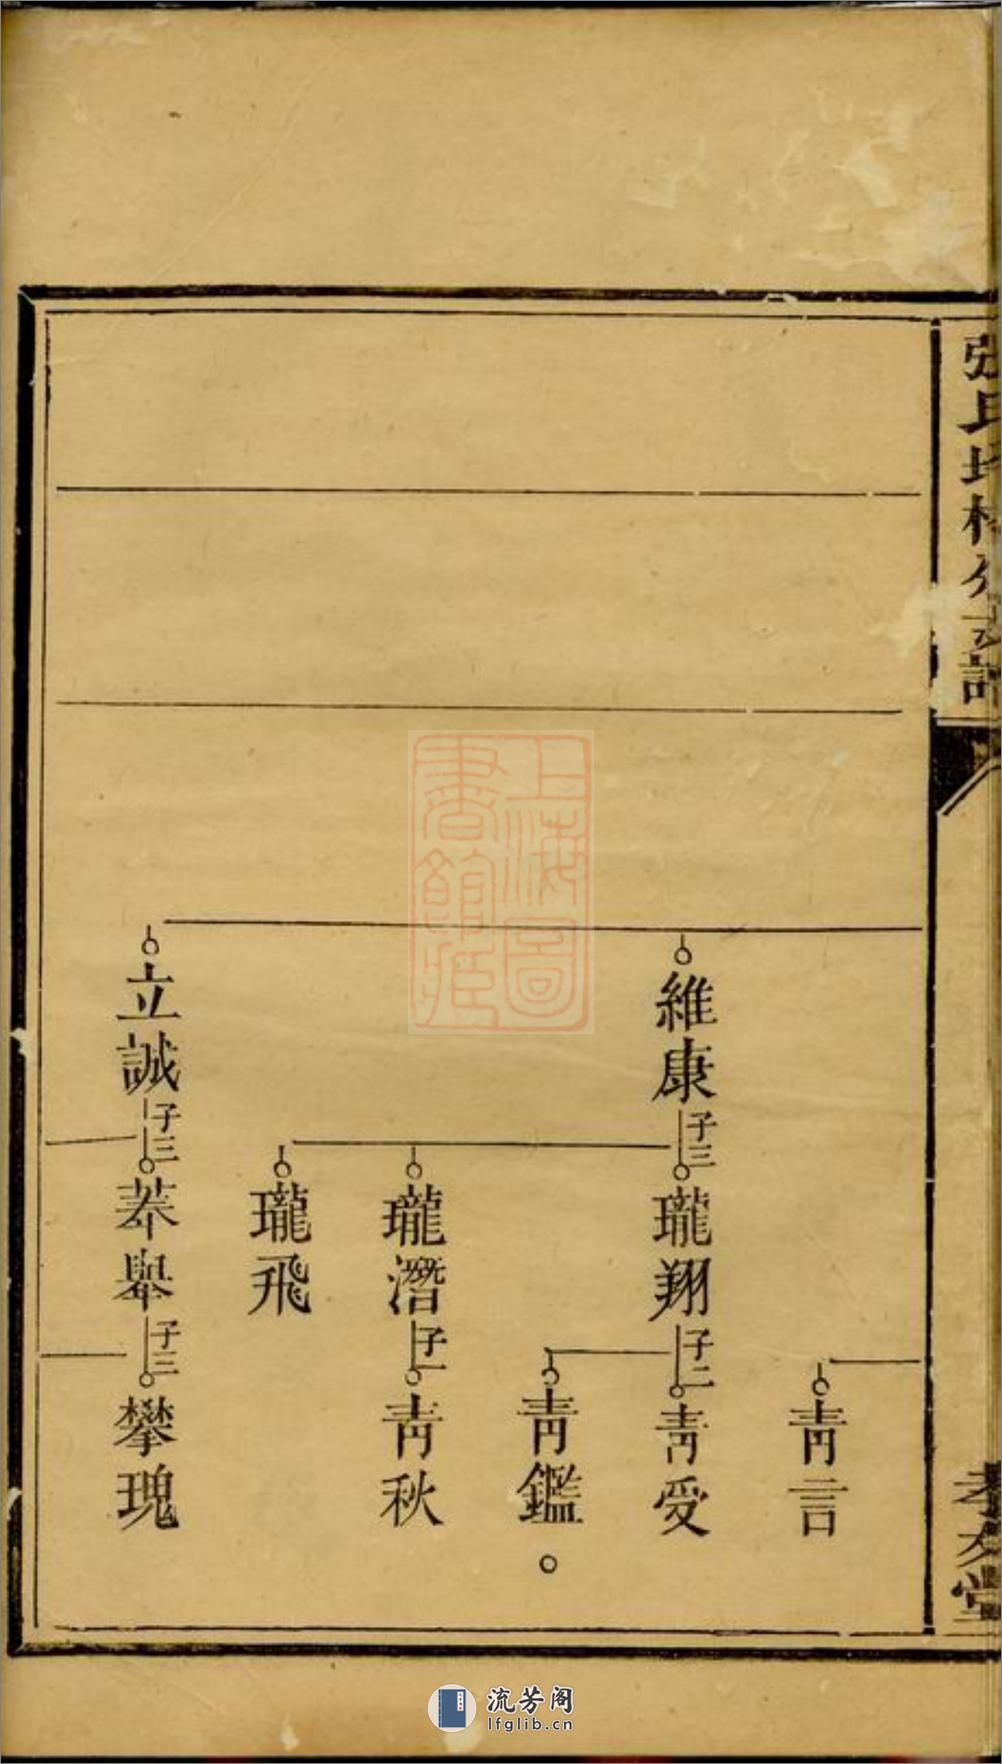 張氏
譜
孝友堂
青言
維康
子三
瓏翔
子二
青受
青鑑。
瓏潛
子一
青秋
瓏飛
立誠
子三
菾舉
子三
攀瑰
上海圖
書館藏
流芳阁
lfglib.cn